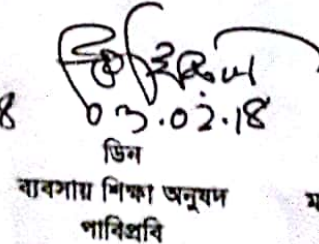 03.02.18
ডিন
ব্যবসায় শিক্ষা অনুষদ
পাবিপ্রবি